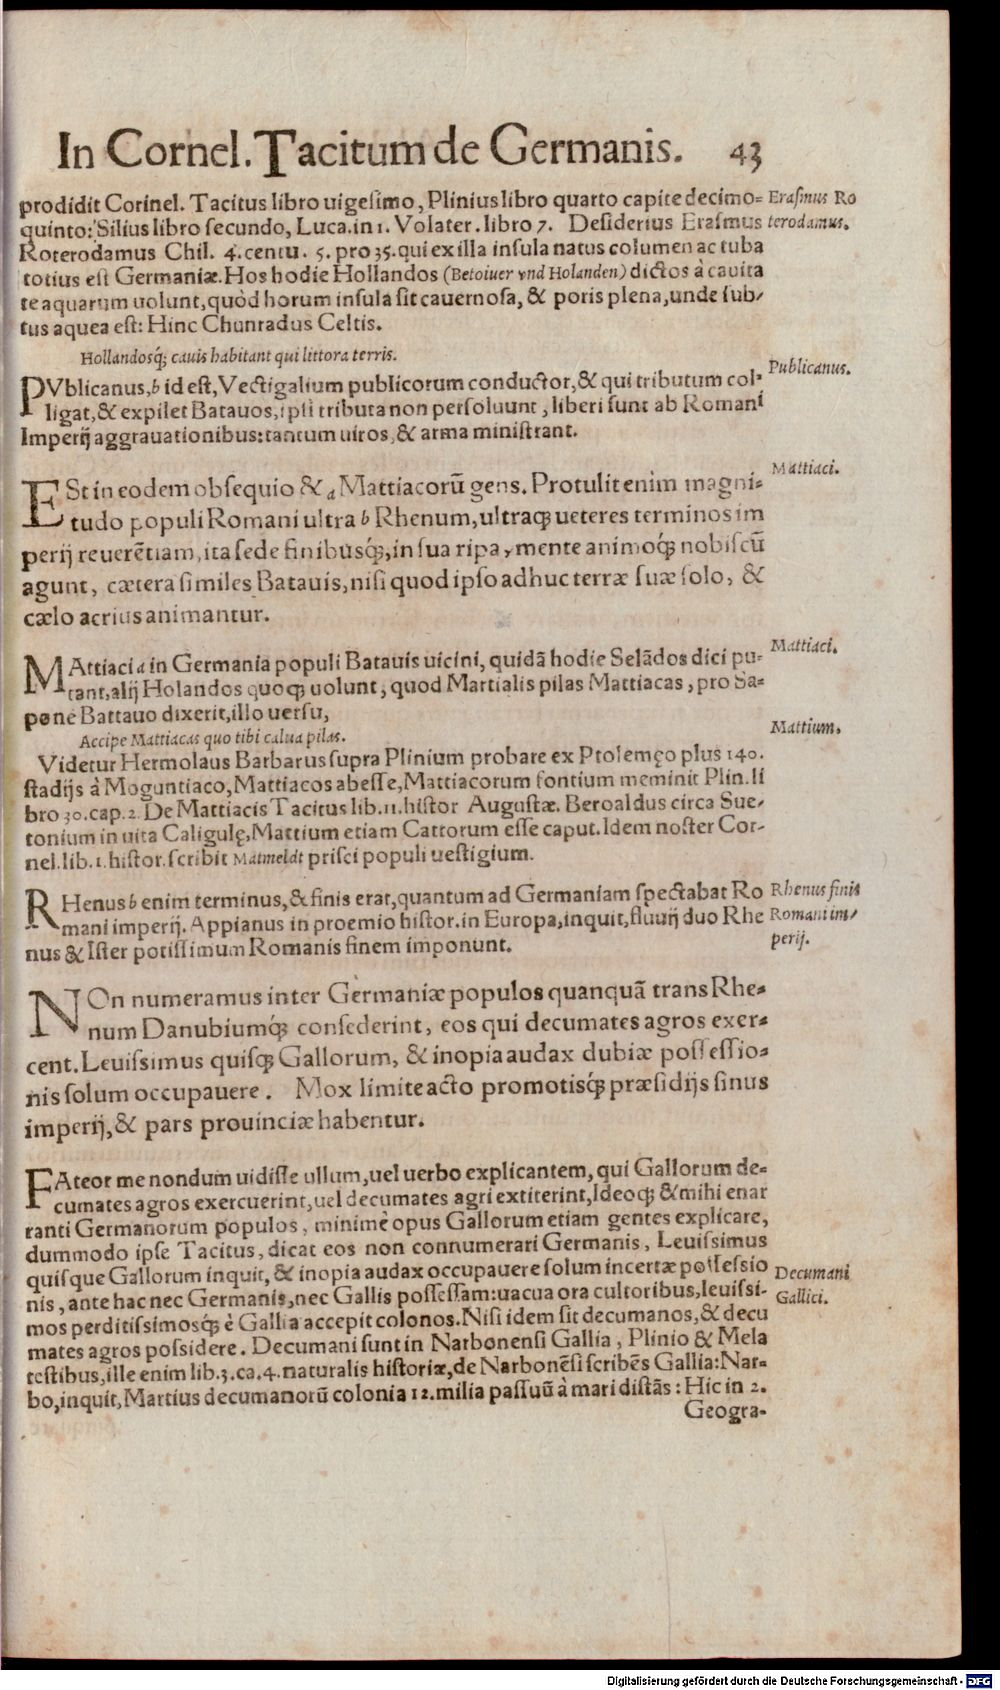 In Cornel. Tacitum de Germanis. 43
prodidit Corinel. Tacitus libro uigesimo, Plinius libro quarto capite decimo=
Erasmus Ro
quinto: Silius libro secundo, Luca. in 1. Volater. libro 7. Desiderius Erasmus
terodamus.
Roterodamus Chil. 4. centu. 5. pro 35. qui ex illa insula natus columen ac tuba
totius est Germaniæ. Hos hodie Hollandos (Betoiuer vnd Holanden) dictos à cauita
te aquarum uolunt, quòd horum insula sit cauernosa, & poris plena, unde sub/
tus aquea est: Hinc Chunradus Celtis.
Hollandosq́; cauis habitant qui littora terris.
PVblicanus, b id est, Vectigalium publicorum conductor, & qui tributum col=
Publicanus.
ligat, & expilet Batauos, ipsi tributa non persoluunt, liberi sunt ab Romani
Imperij aggrauationibus: tantum uiros, & arma ministrant.
Mattiaci.
ESt in eodem obsequio & a Mattiacorũ gens. Protulit enim magni=
tudo populi Romani ultra b Rhenum, ultraq; ueteres terminos im
perij reuerẽtiam, ita sede finibusq́;, in sua ripa, mente animoq́; nobiscũ
agunt, cætera similes Batauis, nisi quod ipso adhuc terræ suæ solo, &
cælo acrius animantur.
MAttiaci a in Germania populi Batauis uicini, quidã hodie Selãdos dici pu=
Mattiaci.
tant, alij Holandos quoq; uolunt, quod Martialis pilas Mattiacas, pro Sa=
pone Battauo dixerit, illo uersu,
Accipe Mattiacas quo tibi calua pilas.
Mattium.
Videtur Hermolaus Barbarus supra Plinium probare ex Ptolemęo plus 140.
stadijs à Moguntiaco, Mattiacos abesse, Mattiacorum fontium meminit Plin. li
bro 30. cap. 2. De Mattiacis Tacitus lib. 11. histor Augustæ. Beroaldus circa Sue/
tonium in uita Caligulę, Mattium etiam Cattorum esse caput. Idem noster Cor-
nel. lib. 1. histor. scribit Matmeldt prisci populi uestigium.
RHenus b enim terminus, & finis erat, quantum ad Germaniam spectabat Ro
Rhenus finis
mani imperij. Appianus in proemio histor. in Europa, inquit, fluuij duo Rhe
Romani im/
nus & Ister potissimum Romanis finem imponunt.
perij.
NOn numeramus inter Germaniæ populos quanquã trans Rhe=
num Danubiumq́; consederint, eos qui decumates agros exer=
cent. Leuissimus quisq; Gallorum, & inopia audax dubiæ possessio=
nis solum occupauere. Mox limite acto promotisq́; præsidijs sinus
imperij, & pars prouinciæ habentur.
FAteor me nondum uidisse ullum, uel uerbo explicantem, qui Gallorum de=
cumates agros exercuerint, uel decumates agri extiterint, Ideoq; & mihi enar
ranti Germanorum populos, minimè opus Gallorum etiam gentes explicare,
dummodo ipse Tacitus, dicat eos non connumerari Germanis, Leuissimus
quisque Gallorum inquit, & inopia audax occupauere solum incertæ possessio
Decumani
nis, ante hac nec Germanis, nec Gallis possessam: uacua ora cultoribus, leuissi=
Gallici.
mos perditissimosq́; è Gallia accepit colonos. Nisi idem sit decumanos, & decu
mates agros possidere. Decumani sunt in Narbonensi Gallia, Plinio & Mela
testibus, ille enim lib. 3. ca. 4. naturalis historiæ, de Narbonẽsi scribẽs Gallia: Nar=
bo, inquit, Martius decumanorũ colonia 12. milia passuũ à mari distãs: Hic in 2.
Geogra-
Digitalisierung gefördert durch die Deutsche Forschungsgemeinschaft - DFG